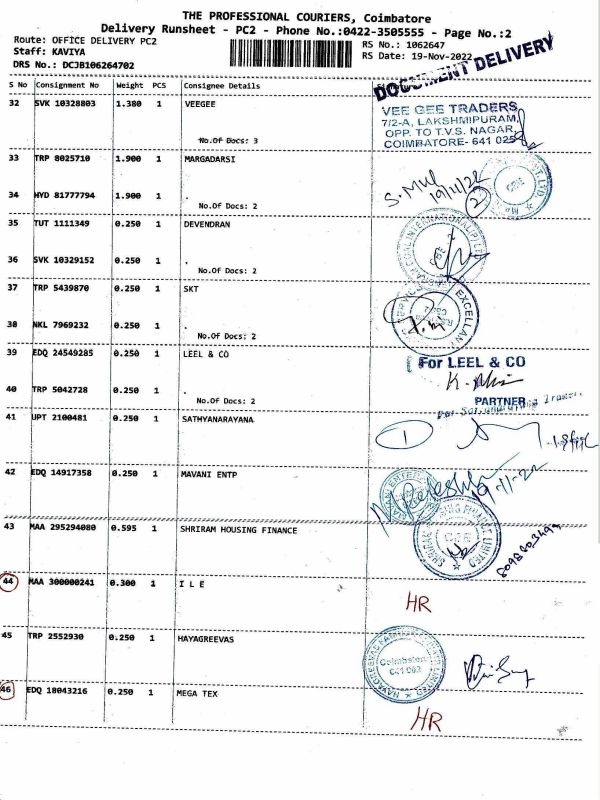 THE PROFESSIONAL COURIERS, Coimbatore
Delivery Runsheet - PC2 - Phone No.:0422-3505555 - Page No.:2
Route: OFFICE DELIVERY PC2
Staff: KAVIYA
DRS No.: DCJB106264702
RS No.: 1062647
RS Date: 19-Nov-2022
DOCUMENT DELIVERY
S No Consignment No Weight PCS Consignee Details
32 SVK 10328803 1.380 1 VEEGEE
No.Of Docs: 3
VEE GEE TRADERS
7/2-A, LAKSHMIPURAM,
OPP. TO T.V.S. NAGAR,
COIMBATORE- 641 025
33 TRP 8025710 1.900 1 MARGADARSI
34 HYD 81777794 1.900 1 .
No.Of Docs: 2
19/11/22
2
35 TUT 1111349 0.250 1 DEVENDRAN
36 SVK 10329152 0.250 1 .
No.Of Docs: 2
37 TRP 5439870 0.250 1 SKT
38 NKL 7969232 0.250 1 .
No.Of Docs: 2
EXCELLANT
39 EDQ 24549285 0.250 1 LEEL & CO
For LEEL & CO
40 TRP 5042728 0.250 1 .
No.Of Docs: 2
PARTNER
41 UPT 2100481 0.250 1 SATHYANARAYANA
1
42 EDQ 14917358 0.250 1 MAVANI ENTP
19-11-22
43 MAA 295294080 0.595 1 SHRIRAM HOUSING FINANCE
44 MAA 300000241 0.300 1 I L E
HR
45 TRP 2552930 0.250 1 HAYAGREEVAS
Coimbatore
641 002
46 EDQ 18043216 0.250 1 MEGA TEX
HR